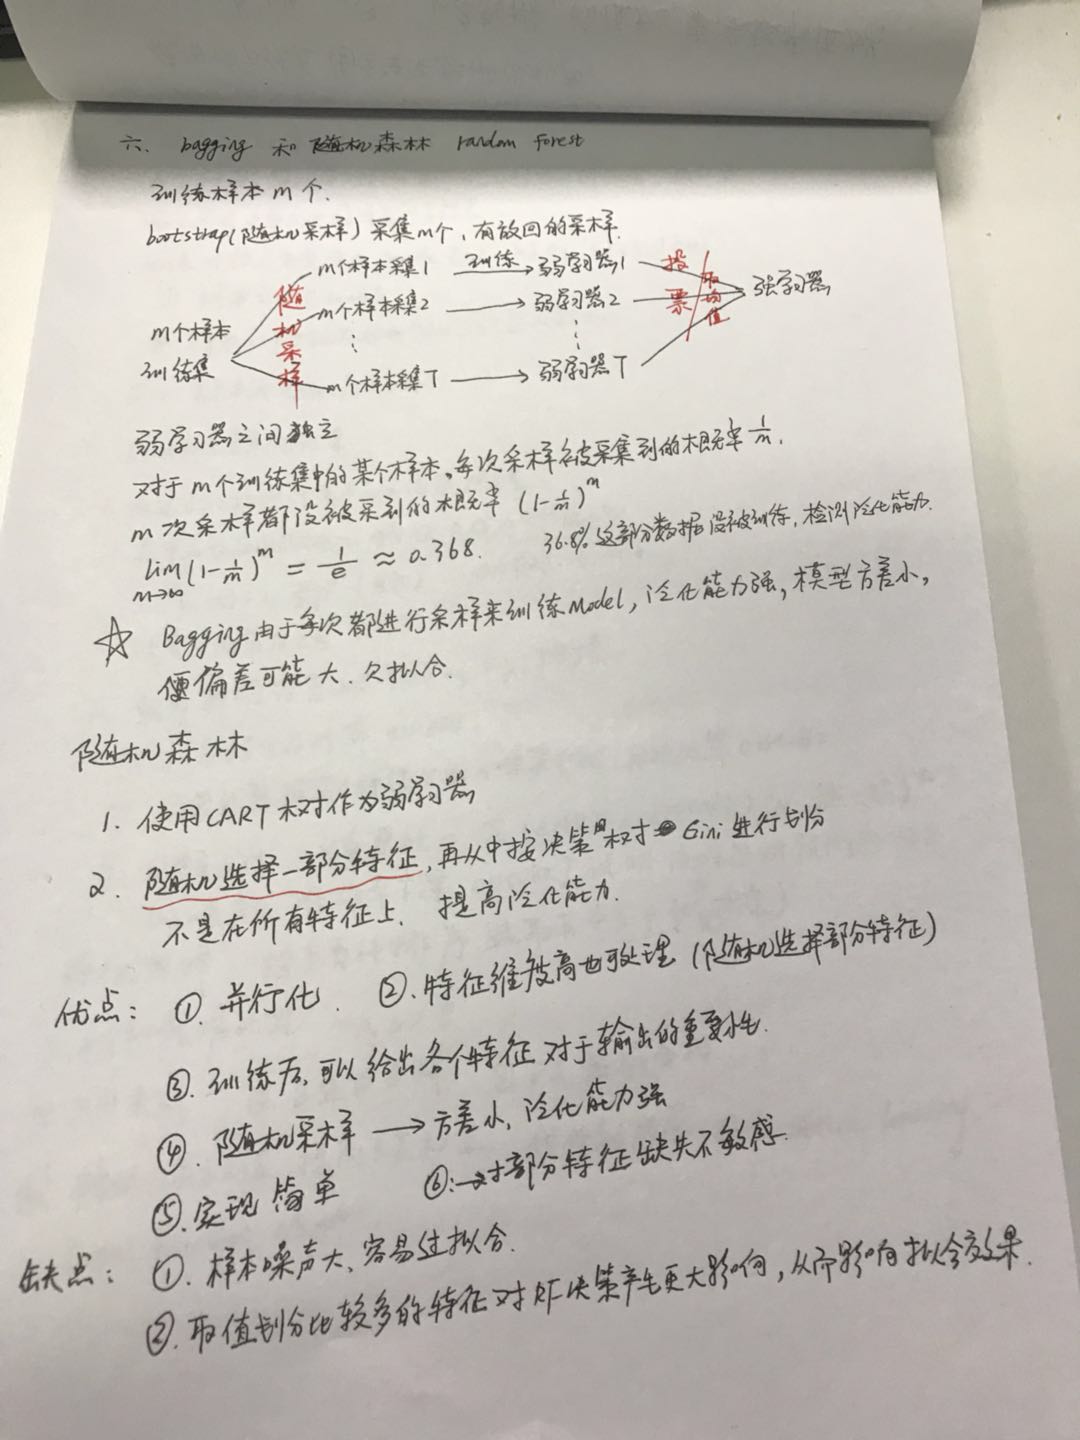 六、bagging 和 随机森林 random forest
训练样本 m 个.
bootstrap(随机采样) 采集m个，有放回的采样.
m个样本采集1 训练 弱学习器1
m个样本采集2 弱学习器2
m个样本
训练集
随机采样
投票/取均值
强学习器
⋮ ⋮
m个样本采集T 弱学习器T
弱学习器之间独立
对于 m个训练集中的某个样本，每次采样被采集到的概率 1/m.
m 次采样都没被采到的概率 (1-1/m)^m
lim m→∞ (1-1/m)^m = 1/e ≈ 0.368. 36.8% 这部分数据没被训练，检测泛化能力.
☆ Bagging 由于每次都进行采样来训练Model，泛化能力强，模型方差小，
但偏差可能大、欠拟合.
随机森林
1. 使用CART 树作为弱学习器
2. 随机选择一部分特征，再从中按决策树 Gini 进行划分
不是在所有特征上. 提高泛化能力.
优点： ①. 并行化. ②. 特征维度高也可处理 (随机选择部分特征)
③. 训练后，可以给出各个特征对于输出的重要性.
④. 随机采样 → 方差小，泛化能力强
⑤. 实现简单 ⑥: 对部分特征缺失不敏感.
缺点： ①. 样本噪声大、容易过拟合.
②. 取值划分比较多的特征对RF决策产生更大影响，从而影响拟合效果.